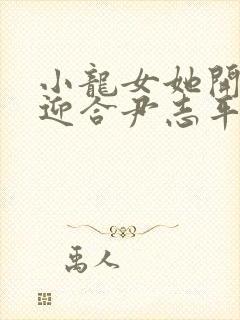 小龍女她開
迎合尹志平
禹人